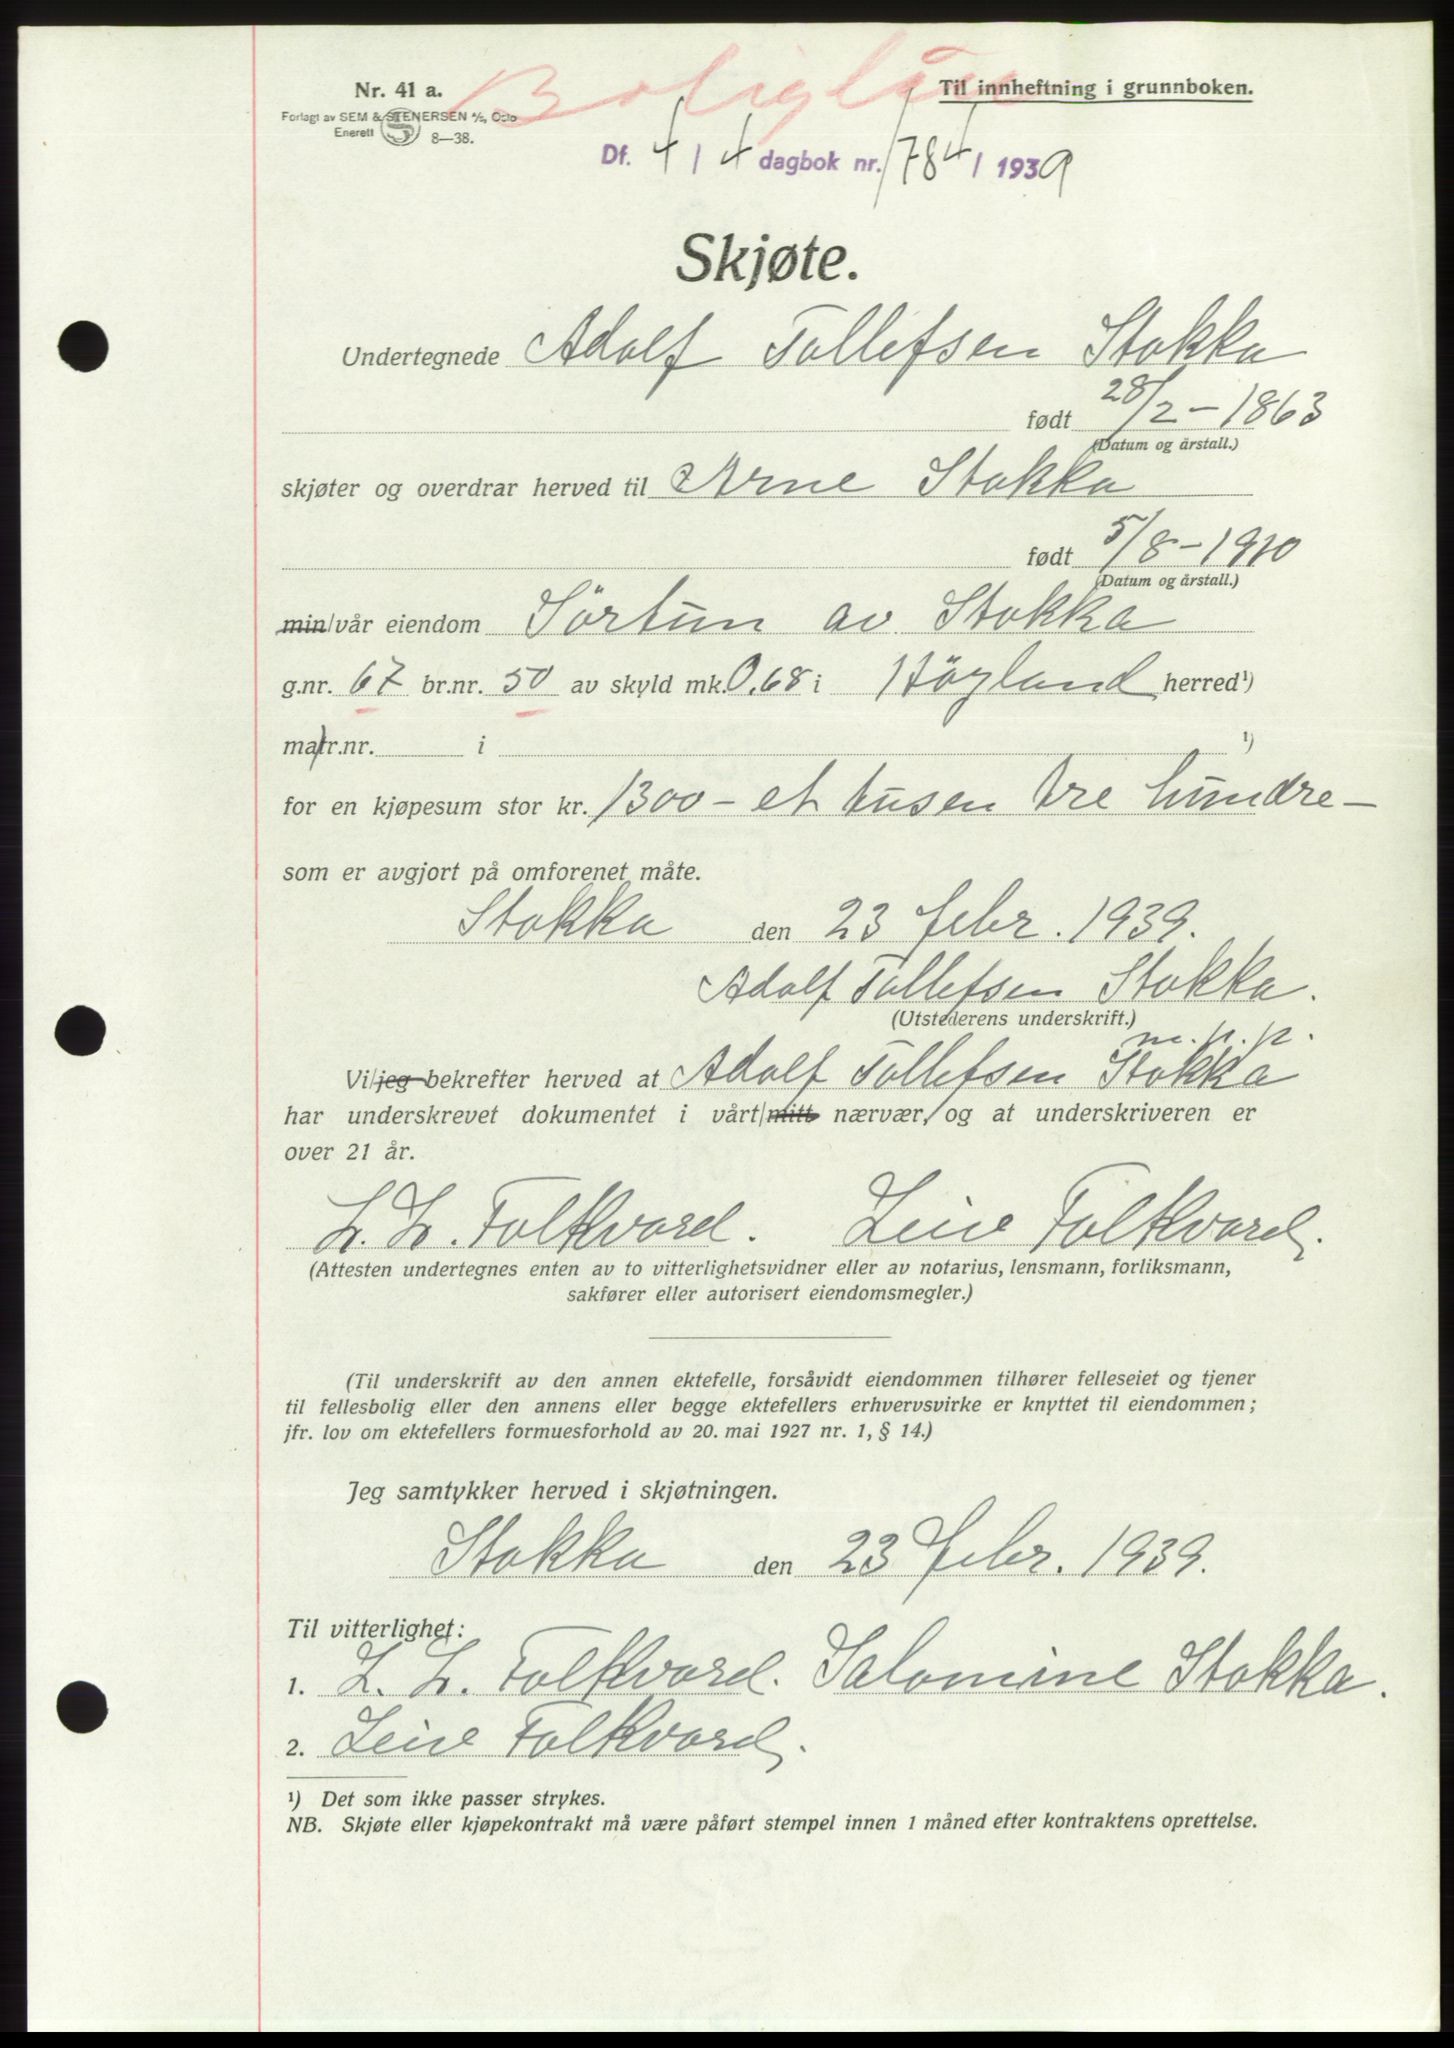 Boliglån
Nr. 41 a.
Til innheftning i grunnboken.
Forlagt av SEM & STENERSEN A/S, Oslo
Enerett
S
8—38.
Df. 4 / 4 dagbok nr. 1784 / 1939
Skjøte.
Undertegnede Adolf Tollefsen Stokka
født 28/2 - 1863
(Datum og årstall.)
skjøter og overdrar herved til Arne Stokka
født 5/8 - 1910
(Datum og årstall.)
min/vår eiendom Sörtun av Stokka
g.nr. 67 br.nr. 50 av skyld mk. 0.68 i Höyland herred¹)
matr.nr. i ¹)
for en kjøpesum stor kr. 1300 - et tusen tre hundre -
som er avgjort på omforenet måte.
Stokka den 23 febr. 1939.
Adolf Tollefsen Stokka.
(Utstederens underskrift.)
m. p. p.
Vi/jeg bekrefter herved at Adolf Tollefsen Stokka
har underskrevet dokumentet i vårt/mitt nærvær, og at underskriveren er
over 21 år.
L. L. Folkvord. Leive Folkvord.
(Attesten undertegnes enten av to vitterlighetsvidner eller av notarius, lensmann, forliksmann,
sakfører eller autorisert eiendomsmegler.)
(Til underskrift av den annen ektefelle, forsåvidt eiendommen tilhører felleseiet og tjener
til fellesbolig eller den annens eller begge ektefellers erhvervsvirke er knyttet til eiendommen;
jfr. lov om ektefellers formuesforhold av 20. mai 1927 nr. 1, § 14.)
Jeg samtykker herved i skjøtningen.
Stokka den 23 febr. 1939.
Til vitterlighet:
1. L. L. Folkvord. Salomine Stokka.
2. Leive Folkvord.
¹) Det som ikke passer strykes.
NB. Skjøte eller kjøpekontrakt må være påført stempel innen 1 måned efter kontraktens oprettelse.